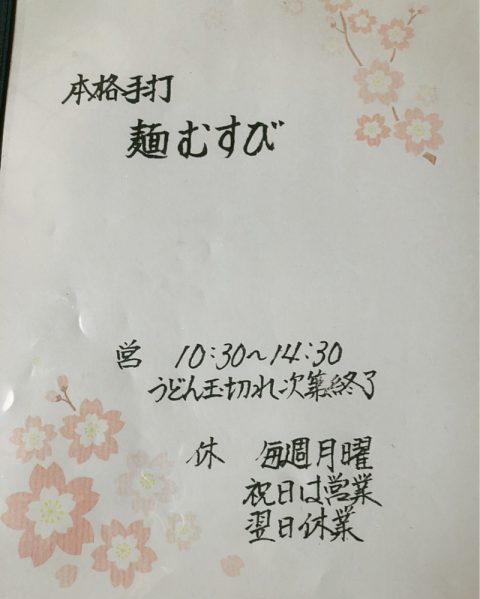 本格手打
麺むすび
営 10:30〜14:30
うどん玉切れ次第終了
休 毎週月曜
祝日は営業
翌日休業